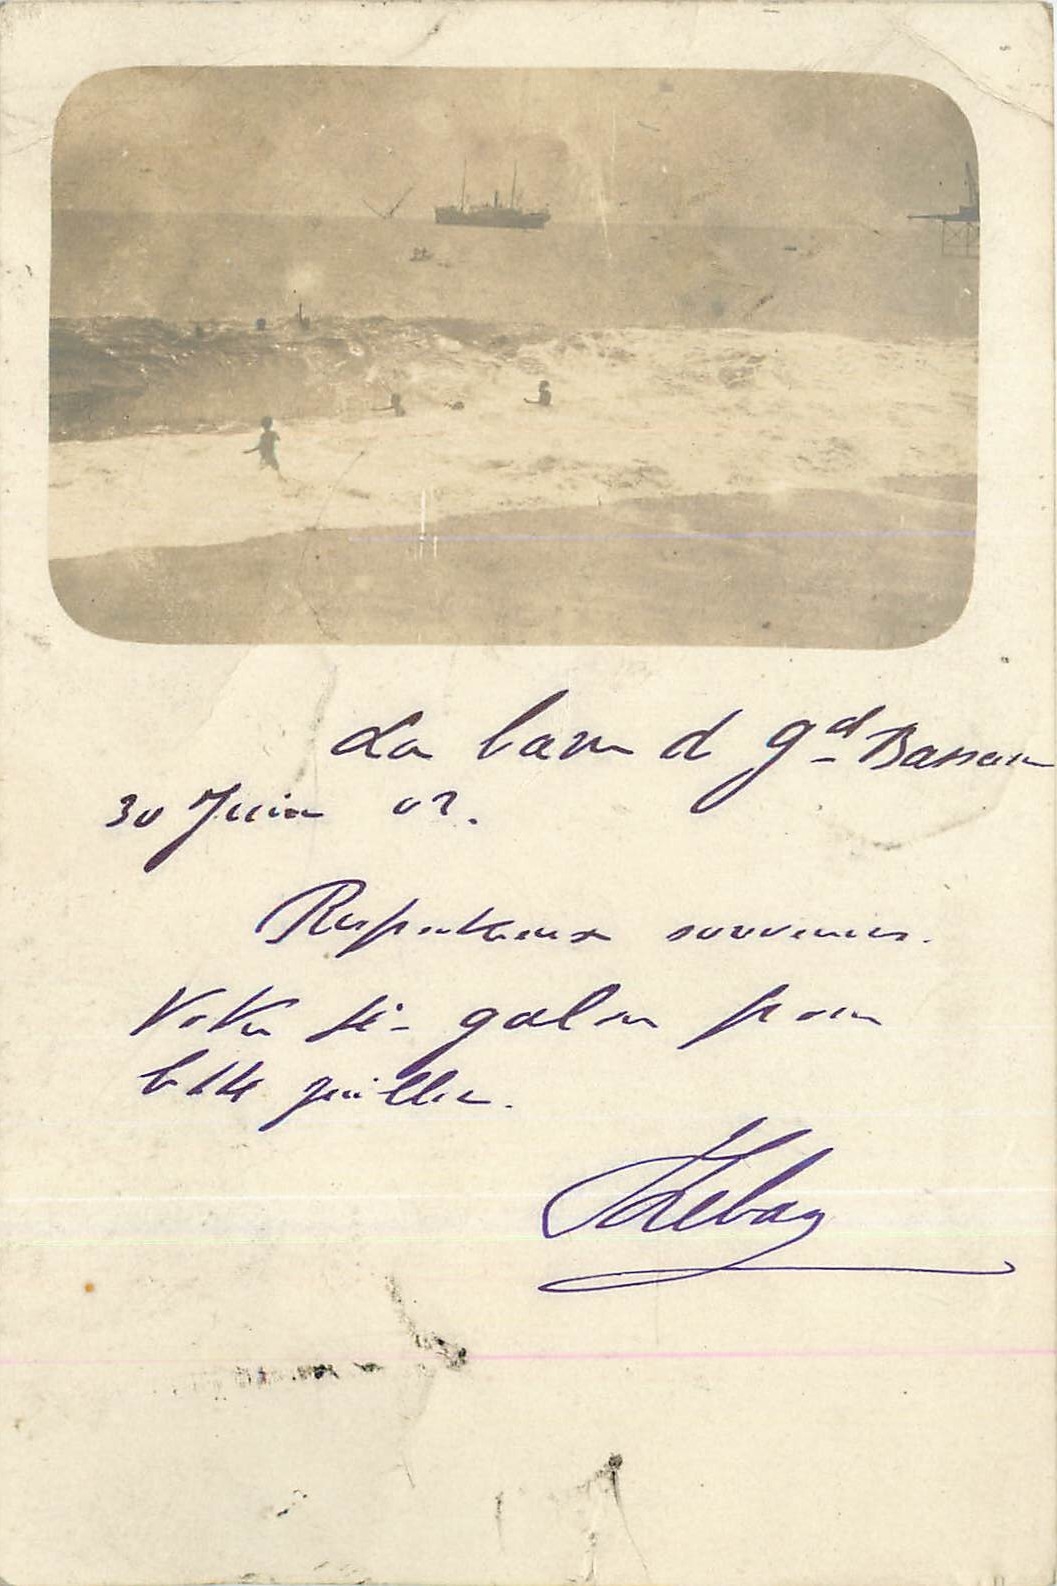 La barre de Gd Bassam
30 Juin 02.
Respectueux souvenirs.
Votre galon pour
le 14 juillet.